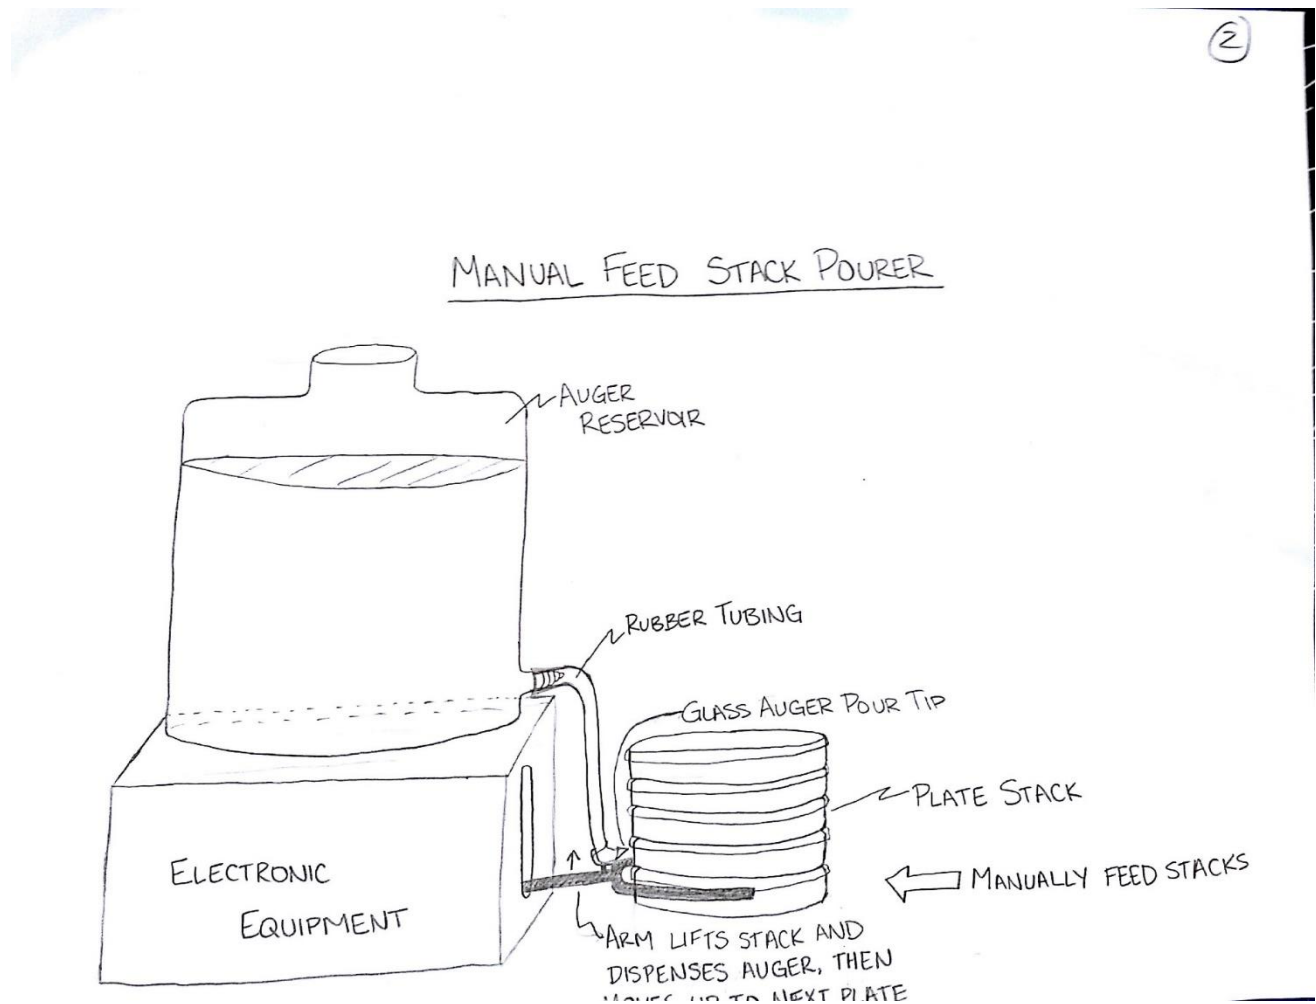 2
MANUAL FEED STACK POURER
AUGER
RESERVOIR
RUBBER TUBING
GLASS AUGER POUR TIP
PLATE STACK
MANUALLY FEED STACKS
ELECTRONIC
EQUIPMENT
ARM LIFTS STACK AND
DISPENSES AUGER, THEN
MOVES UP TO NEXT PLATE